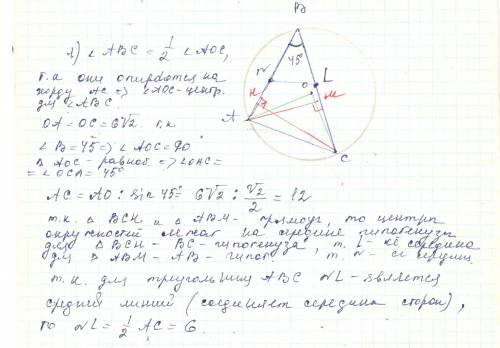 1) ∠ABC = 1/2 ∠AOC,
т.к они опираются на
хорду AC => ∠AOC-центр.
для ∠ABC.
OA = OC = 6√2. т.к
∠B = 45 => ∠AOC = 90
Δ AOC - равноб. => ∠OAC =
= ∠OCA = 45°
AC = AO : sin 45° = 6√2 : √2/2 = 12
т.к. Δ BCH и Δ ABM - прямоуг, то центры
окружностей лежат на середине гипотенузы
для Δ BCH - BC - гипотенуза, т. L - её середина
для Δ ABM - AB - гипот. т. N - её середин.
т.к. для треугольника ABC NL - является
средней линией (соединяет середины сторон),
то NL = 1/2 AC = 6.
B
45°
N
L
O
H
M
A
C